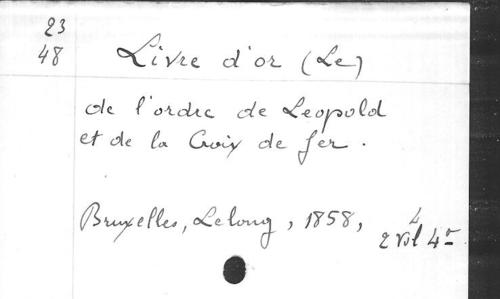 23
48
Livre d'or (Le)
de l'ordre de Leopold
et de la Croix de fer.
Bruxelles, Lelong, 1858,
4
2 vol 4º